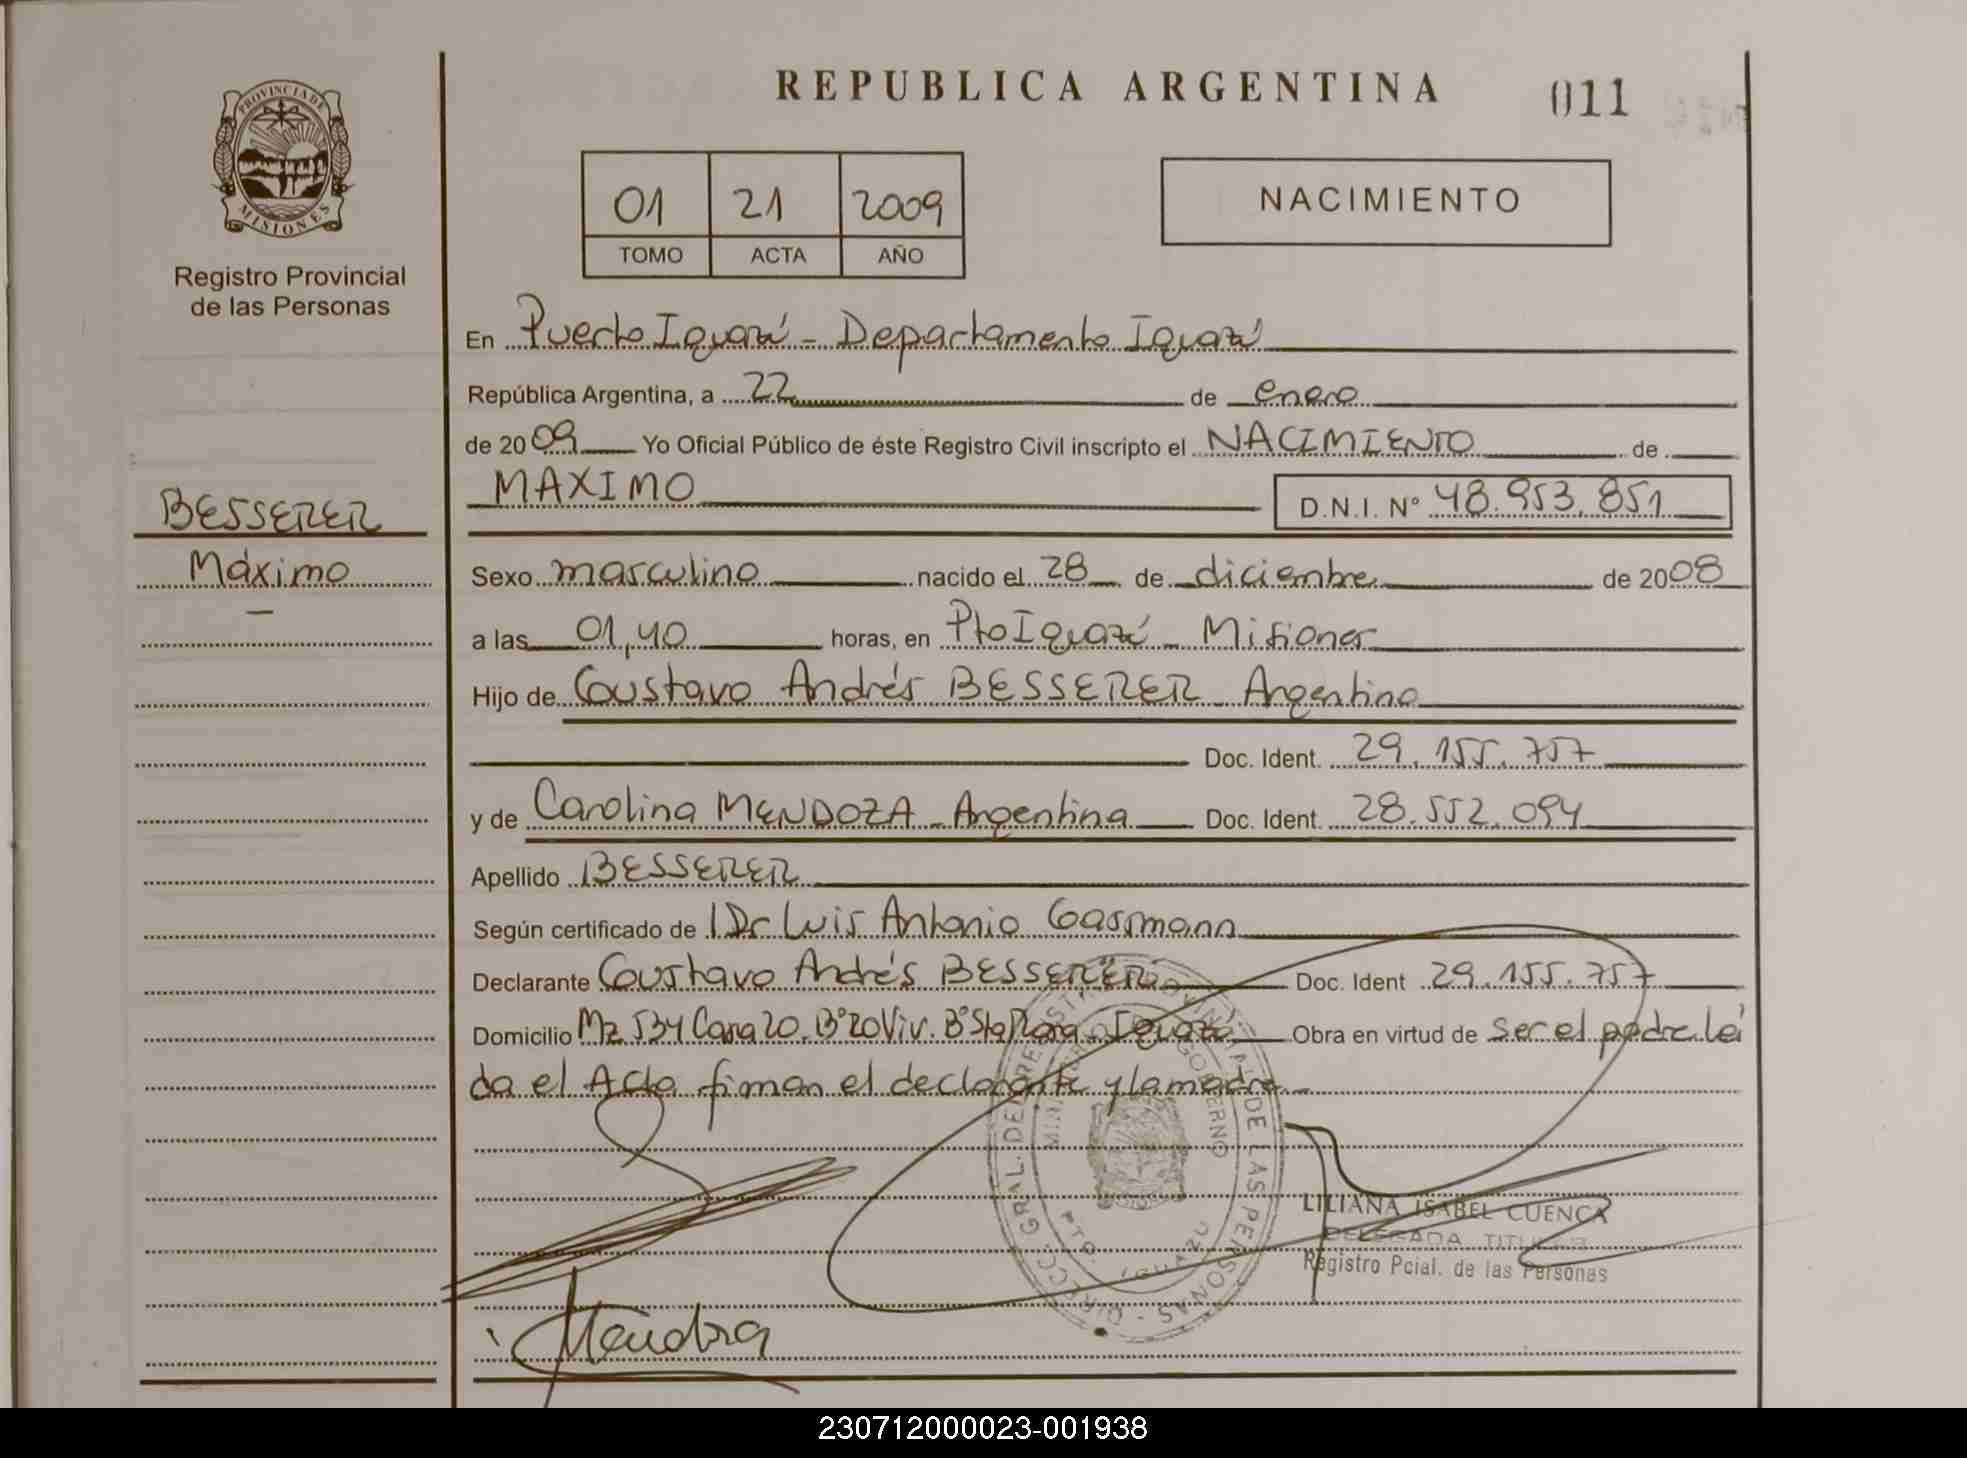 REPUBLICA ARGENTINA
011
PROVINCIA DE
MISIONES
Registro Provincial
de las Personas
01 21 2009
TOMO ACTA AÑO
NACIMIENTO
En Puerto Iguazú - Departamento Iguazú
República Argentina, a 22 de enero
de 2009 Yo Oficial Público de éste Registro Civil inscripto el NACIMIENTO de
MAXIMO D.N.I. Nº 48.953.851
BESSERER
Máximo
Sexo masculino nacido el 28 de diciembre de 2008
a las 01,40 horas, en Pto Iguazú - Misiones
Hijo de Gustavo Andrés BESSERER - Argentino
Doc. Ident. 29.155.757
y de Carolina MENDOZA - Argentina Doc. Ident. 28.552.094
Apellido BESSERER
Según certificado de Dr Luis Antonio Gassmann
Declarante Gustavo Andrés BESSERER Doc. Ident 29.155.757
Domicilio Mz 534 Casa 20. Bº 20 Viv. Bº Sta Rosa - Iguazú Obra en virtud de ser el padre lei
da el Acta firman el declarante y la madre -
DIRECC. GRAL. DEL REGISTRO PROVINCIAL DE LAS PERSONAS
MINISTERIO DE GOBIERNO
PTO. IGUAZU
LILIANA ISABEL CUENCA
DELEGADA TITULAR
Registro Pcial. de las Personas
Mendoza
230712000023-001938